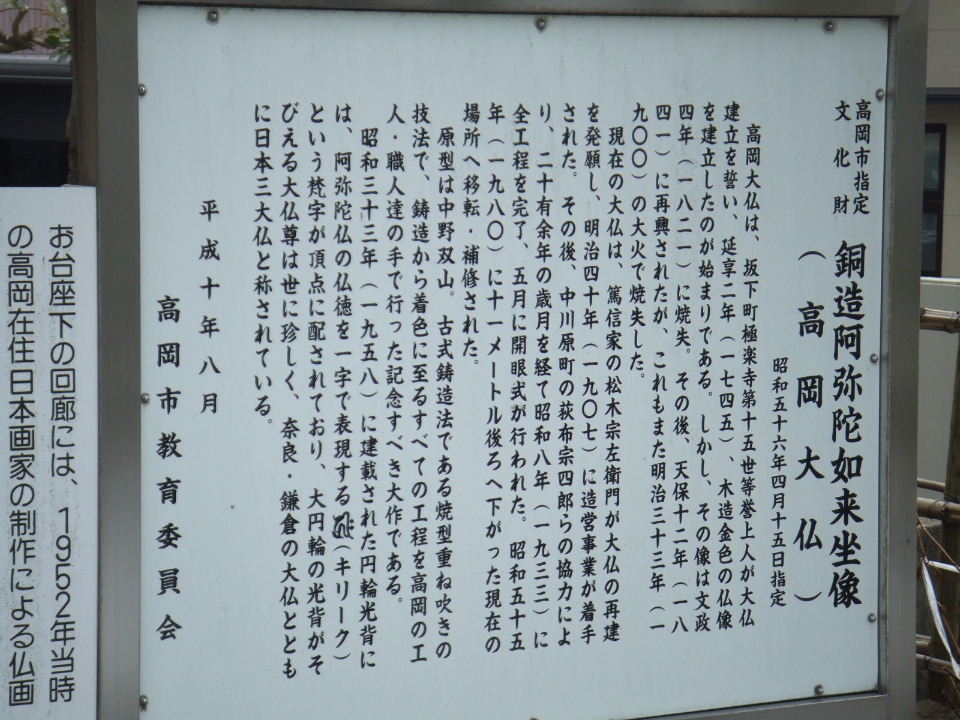 高岡市指定
文化財
銅造阿弥陀如来坐像
（高岡大仏）
昭和五十六年四月十五日指定
高岡大仏は、坂下町極楽寺第十五世等誉上人が大仏
建立を誓い、延享二年（一七四五）、木造金色の仏像
を建立したのが始まりである。しかし、その像は文政
四年（一八二一）に焼失。その後、天保十二年（一八
四一）に再興されたが、これもまた明治三十三年（一
九〇〇）の大火で焼失した。
現在の大仏は、篤信家の松木宗左衛門が大仏の再建
を発願し、明治四十年（一九〇七）に造営事業が着手
された。その後、中川原町の荻布宗四郎らの協力によ
り、二十有余年の歳月を経て昭和八年（一九三三）に
全工程を完了、五月に開眼式が行われた。昭和五十五
年（一九八〇）に十一メートル後ろへ下がった現在の
場所へ移転・補修された。
原型は中野双山。古式鋳造法である焼型重ね吹きの
技法で、鋳造から着色に至るすべての工程を高岡の工
人・職人達の手で行った記念すべき大作である。
昭和三十三年（一九五八）に建載された円輪光背に
は、阿弥陀仏の仏徳を一字で表現する𑖮𑖿𑖨𑖱𑖾（キリーク）
という梵字が頂点に配されており、大円輪の光背がそ
びえる大仏尊は世に珍しく、奈良・鎌倉の大仏ととも
に日本三大仏と称されている。
平成十年八月
高岡市教育委員会
お台座下の回廊には、1952年当時
の高岡在住日本画家の制作による仏画